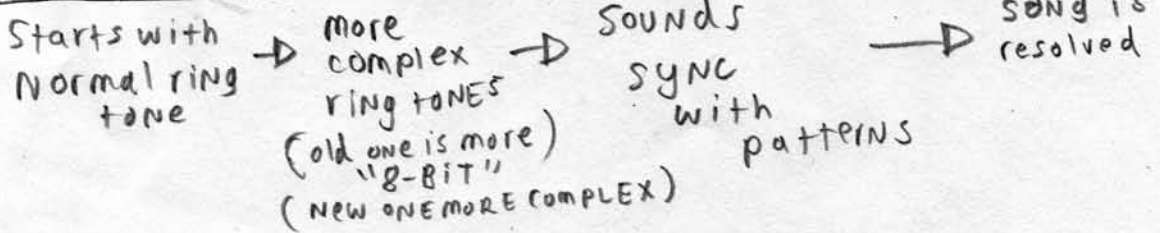 Starts with
Normal ring
tone
more
complex
ring tones
(old one is more)
"8-BiT"
(New one more complex)
Sounds
sync
with
patterns
song is
resolved